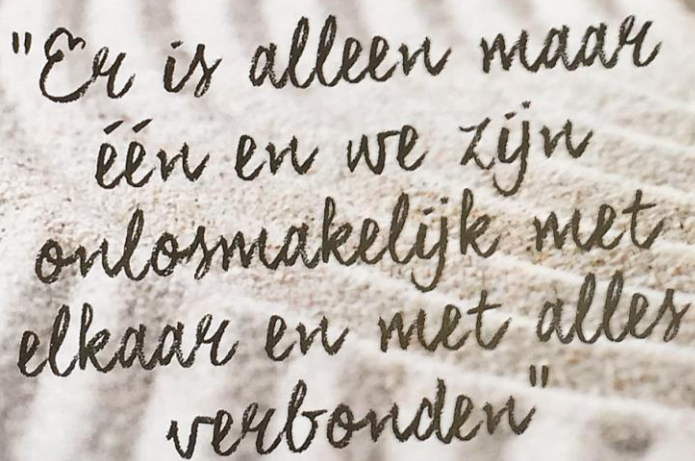 "Er is alleen maar
één en we zijn
onlosmakelijk met
elkaar en met alles
verbonden"